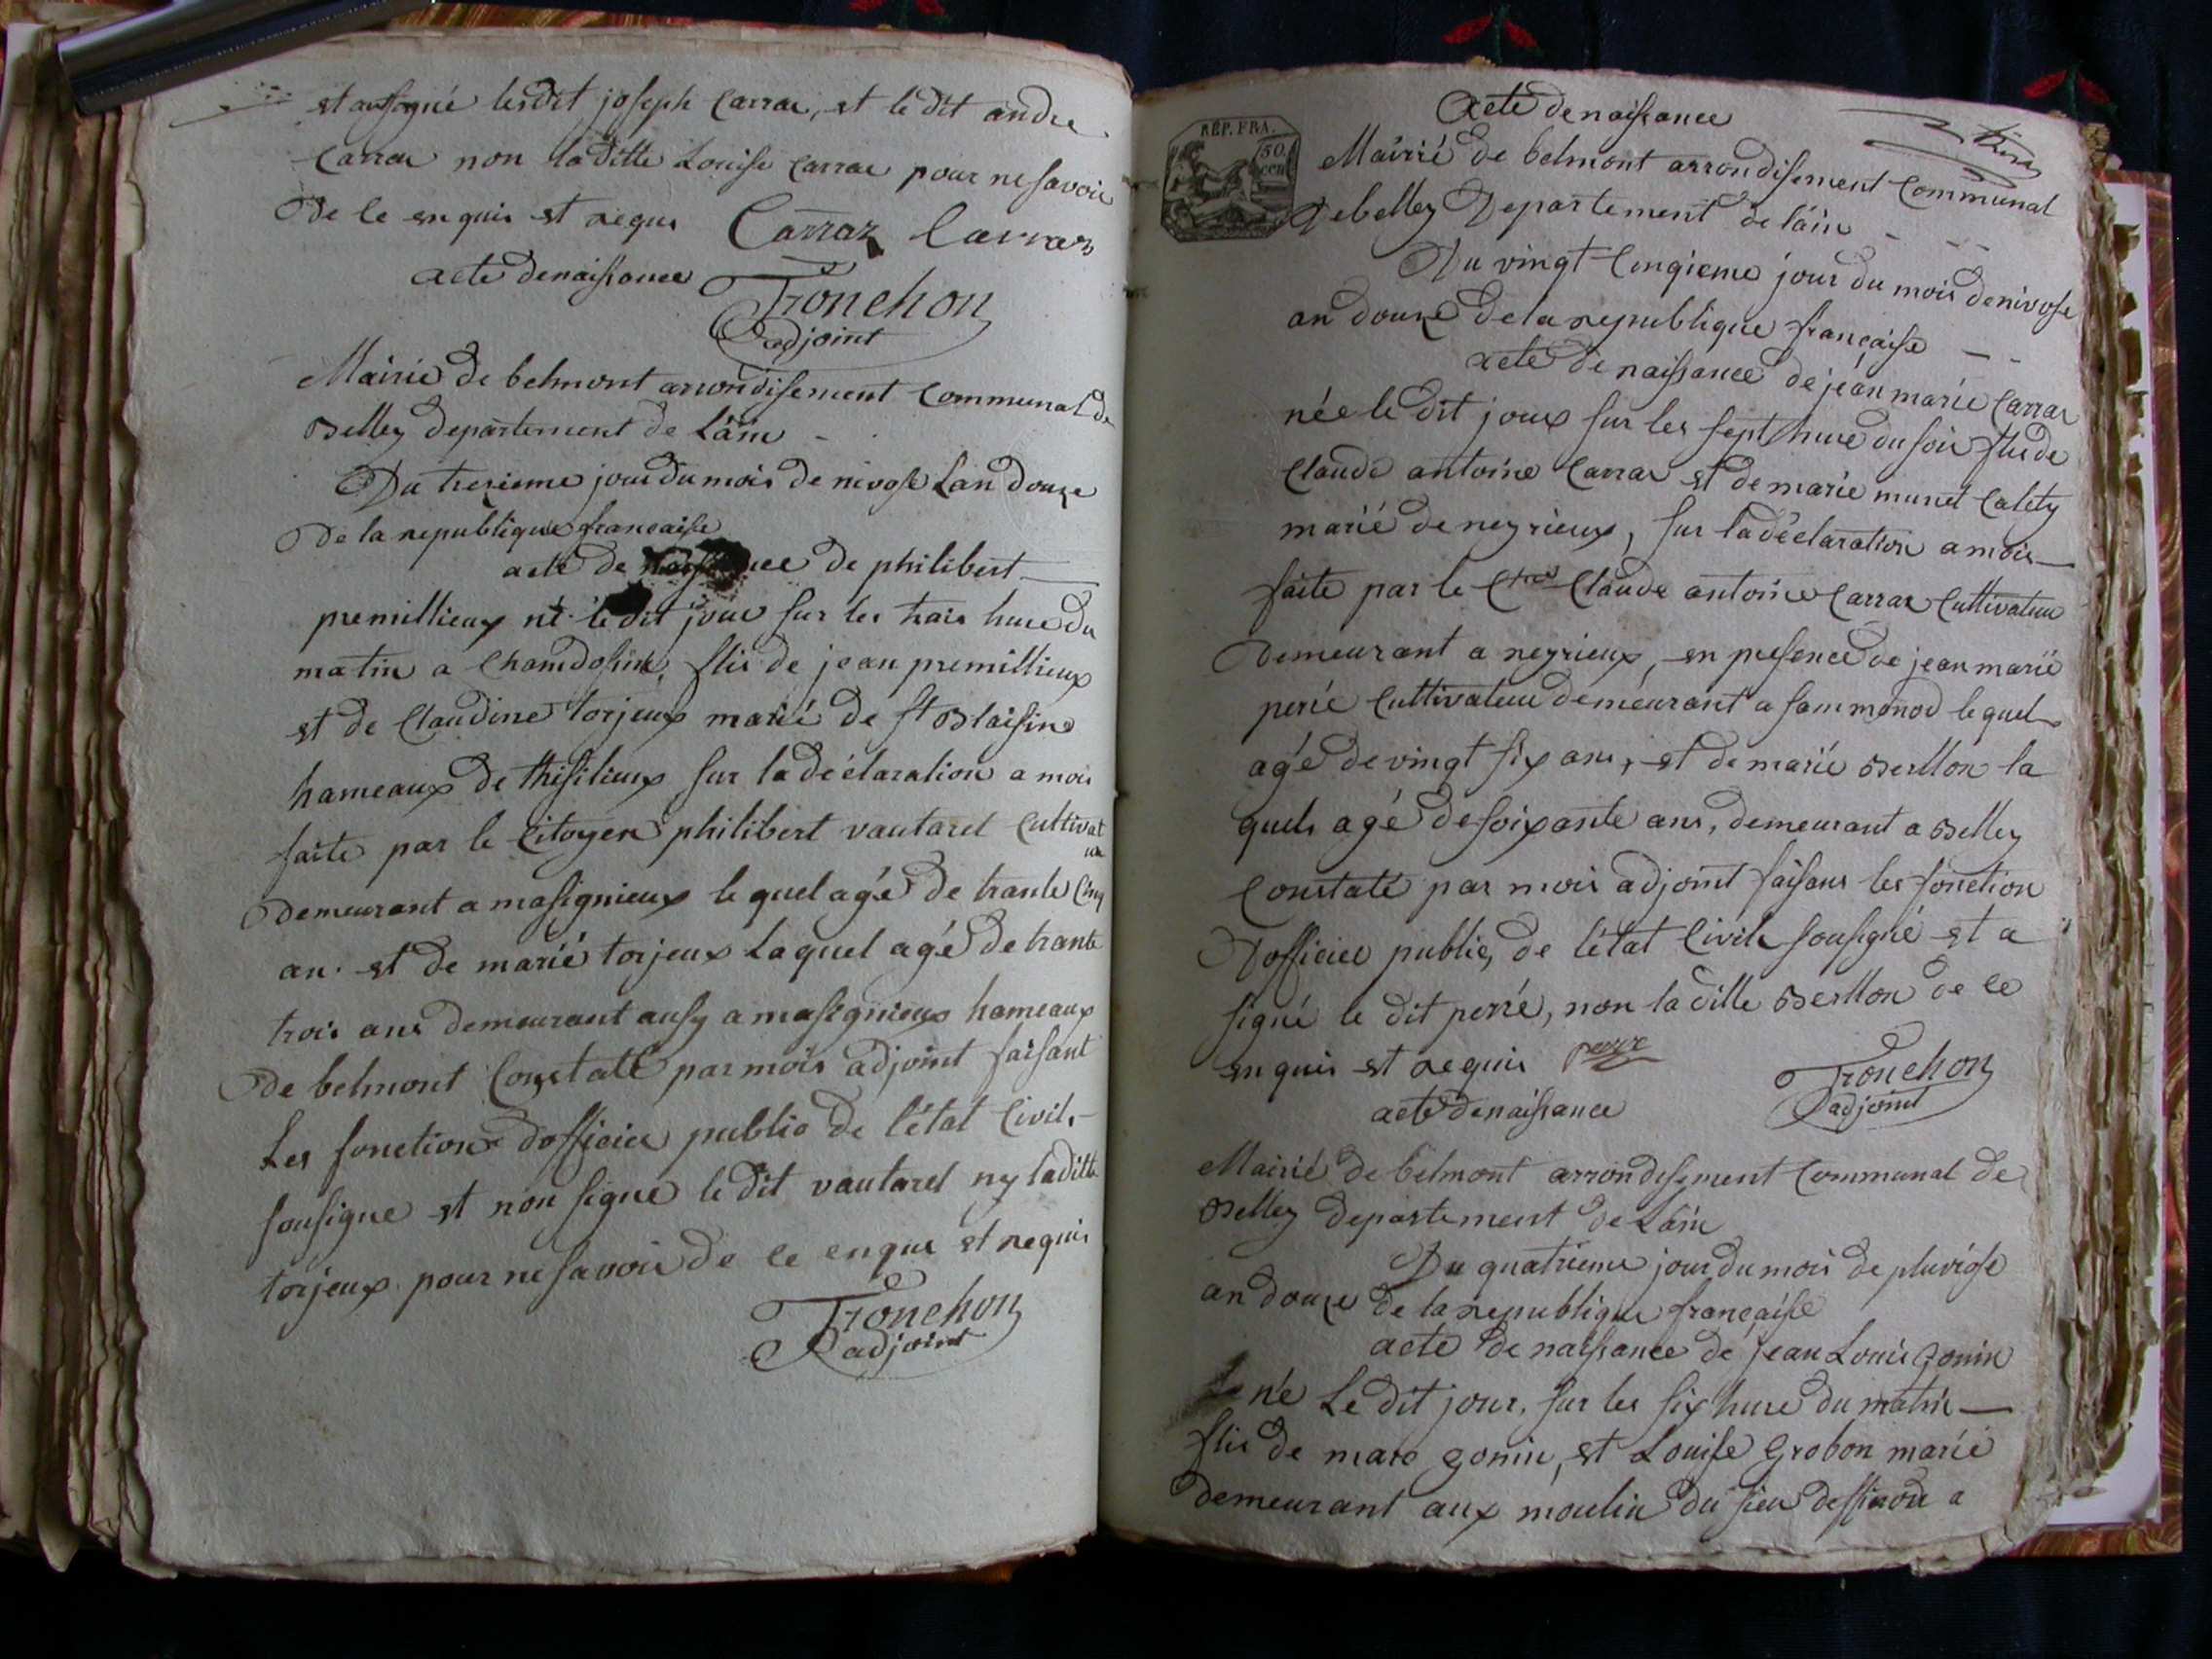 et ausigné lesdit joseph Carrar, et le dit andre
Carrar non laditte Louise Carrar pour ne savoir
De ce enquis et requis Carraz Carraz
acte denaissance Tronchon
adjoint
Mairie de belmont arrondisement Communal de
Belley departement de Lain
Du tresieme jour du mois de nivose Lan douze
De la republique française
acte de naissance de philibert
premillieux né le dit jour sur les trais hure du
matin a flis de jean premillieux
et de Claudine torjeux marié de st Blaisine
hameaux de thisilieux sur la déclaration a mois
faite par le Citoyen philibert vautaret Cultivat
eur
Demeurant a masignieux le quel agé de trante Cinq
an. et de marié torjeux Laquel agé de trante
trois ans demeurant ausy a masignieux hameaux
De belmont Constaté par mois adjoint faisant
Les fonctions dofficier public de l'état Civil,
sousigne et non signe le dit vautaret ny laditte
torjeux pour ne savoir de ce enquis et requis
Tronchon
adjoint
Acte de naissance
RÉP. FRA.
50
cen
Mairié de belmont arrondisement Communal
debelley Departement de lain
Du vingt Cinqieme jour du mois de nivose
an douze de la republique française
acte de naissance de jean marie Carrar
née le dit jour sur les sept hure du soir flis de
Claude antoine Carrar et de marie munet Calety
marié de neyrieux, sur la déclaration a mois
faite par le Claude antoine Carrar Cultivateur
Demeurant a neyrieux, en presence de jean marie
perié Cultivateur demeurant a sammonod le quel
agé de vingt six ans, et de marié Berllon la
quels agé de soixante ans, demeurant a Belley
Constaté par mois adjoint faisans les fonction
Dofficier public, de l'état Civile sousigné et a
signé le dit perié, non laditte Berllon de ce
enquis et requis
Tronchon
acte denaissance adjoint
Mairié de belmont arrondisement Communal de
Belley departement de Lain
Du quatrieme jour du mois de pluviose
an douze de la republique française
acte de naissance de jean Louis gonin
né Le dit jour, sur les six hure du matin
flis de marc gonin, et Louise Grobon marié
demeurant aux moulin du sieu a